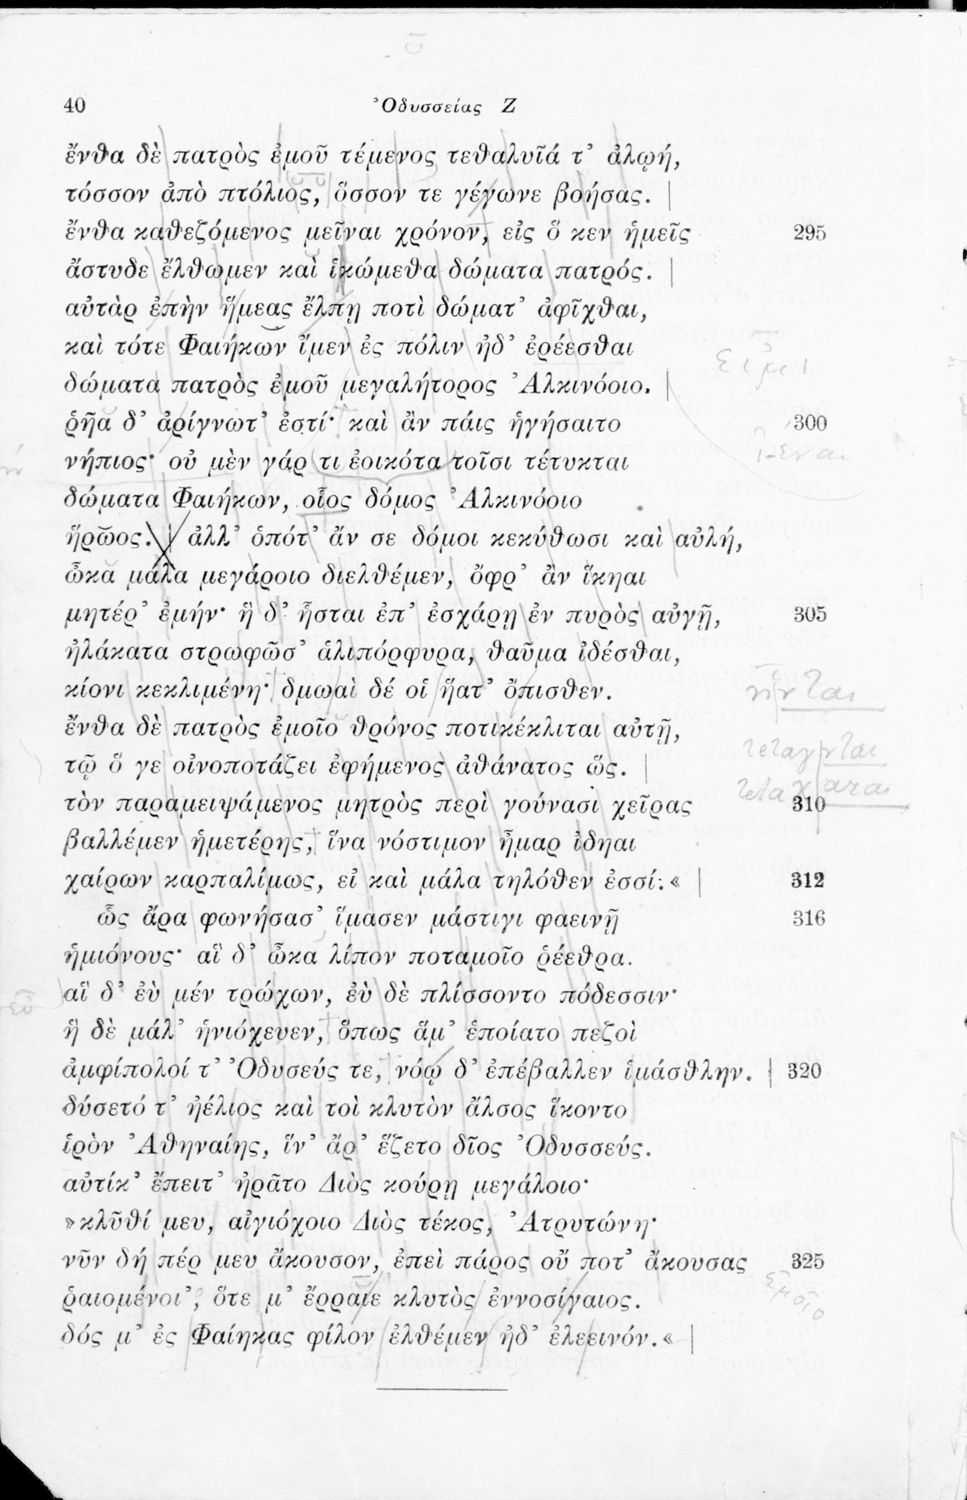 40 Ὀδυσσείας Ζ
ἔνθα δὲ πατρὸς ἐμοῦ τέμενος τεθαλυῖά τ᾽ ἀλωή,
τόσσον ἀπὸ πτόλιος, ὅσσον τε γέγωνε βοήσας. |
ἔνθα καθεζόμενος μεῖναι χρόνον, εἰς ὅ κεν ἡμεῖς 295
ἄστυδε ἔλθωμεν καὶ ἱκώμεθα δώματα πατρός. |
αὐτὰρ ἐπὴν ἥμεας ἔλπῃ ποτὶ δώματ᾽ ἀφῖχθαι,
καὶ τότε Φαιήκων ἴμεν ἐς πόλιν ἠδ᾽ ἐρέεσθαι
εἶμι
δώματα πατρὸς ἐμοῦ μεγαλήτορος Ἀλκινόοιο. |
ῥῆα δ᾽ ἀρίγνωτ᾽ ἐστί· καὶ ἂν πάις ἡγήσαιτο 300
ἰ-έναι
νήπιος· οὐ μὲν γάρ τι ἐοικότα τοῖσι τέτυκται
δώματα Φαιήκων, οἷος δόμος Ἀλκινόοιο
ἥρωος. | ἀλλ᾽ ὁπότ᾽ ἄν σε δόμοι κεκύθωσι καὶ αὐλή,
ὦκα μάλα μεγάροιο διελθέμεν, ὄφρ᾽ ἂν ἵκηαι
μητέρ᾽ ἐμήν· ἣ δ᾽ ἧσται ἐπ᾽ ἐσχάρῃ ἐν πυρὸς αὐγῇ, 305
ἠλάκατα στρωφῶσ᾽ ἁλιπόρφυρα, θαῦμα ἰδέσθαι,
κίονι κεκλιμένη· δμωαὶ δέ οἱ ἥατ᾽ ὄπισθεν.
ἧνται
ἔνθα δὲ πατρὸς ἐμοῖο θρόνος ποτικέκλιται αὐτῇ,
τεταγνται
τῷ ὅ γε οἰνοποτάζει ἐφήμενος ἀθάνατος ὥς. |
τεταχαται
τὸν παραμειψάμενος μητρὸς περὶ γούνασι χεῖρας 310
βαλλέμεν ἡμετέρης, ἵνα νόστιμον ἦμαρ ἴδηαι
χαίρων καρπαλίμως, εἰ καὶ μάλα τηλόθεν ἐσσί.« | 312
ὣς ἄρα φωνήσασ᾽ ἵμασεν μάστιγι φαεινῇ 316
ἡμιόνους· αἳ δ᾽ ὦκα λίπον ποταμοῖο ῥέεθρα.
αἳ δ᾽ ἐὺ μέν τρώχων, ἐὺ δὲ πλίσσοντο πόδεσσιν·
ἣ δὲ μάλ᾽ ἡνιόχευεν, ὅπως ἅμ᾽ ἑποίατο πεζοὶ
ἀμφίπολοί τ᾽ Ὀδυσεύς τε, νόῳ δ᾽ ἐπέβαλλεν ἱμάσθλην. | 320
δύσετό τ᾽ ἠέλιος καὶ τοὶ κλυτὸν ἄλσος ἵκοντο
ἱρὸν Ἀθηναίης, ἵν᾽ ἄρ᾽ ἕζετο δῖος Ὀδυσσεύς.
αὐτίκ᾽ ἔπειτ᾽ ἠρᾶτο Διὸς κούρῃ μεγάλοιο·
»κλῦθί μευ, αἰγιόχοιο Διὸς τέκος, Ἀτρυτώνη·
νῦν δή πέρ μευ ἄκουσον, ἐπεὶ πάρος οὔ ποτ᾽ ἄκουσας 325
ῥαιομένοι᾽, ὅτε μ᾽ ἔρραιε κλυτὸς ἐννοσίγαιος.
ἐμοῖο
δός μ᾽ ἐς Φαίηκας φίλον ἐλθέμεν ἠδ᾽ ἐλεεινόν.« |